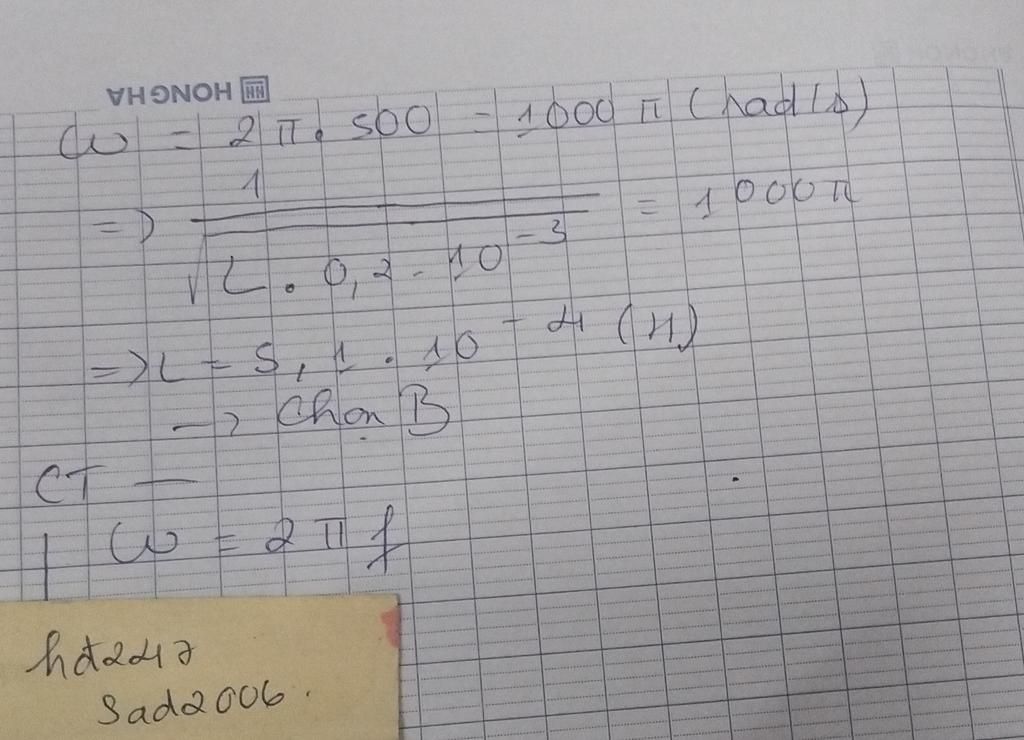 HONG HA
ω = 2π.500 = 1000π (rad/s)
=> 1/√(L.0,2.10^-3) = 1000π
=> L = 5,1.10^-4 (H)
-> Chọn B
CT
ω = 2πf
hd247
sad2006.